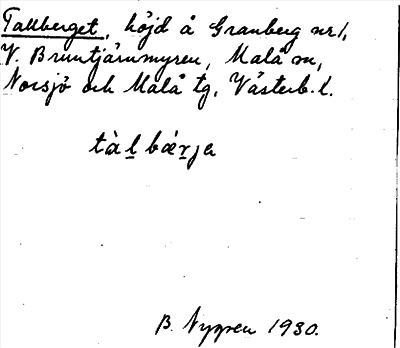 Tallberget, höjd å Granberg nr 1,
V. Bruntjärnmyren, Malå sn,
Norsjö och Malå tg, Västerb. l.
tàḻbæ̀ṟja
B. Nygren 1930.